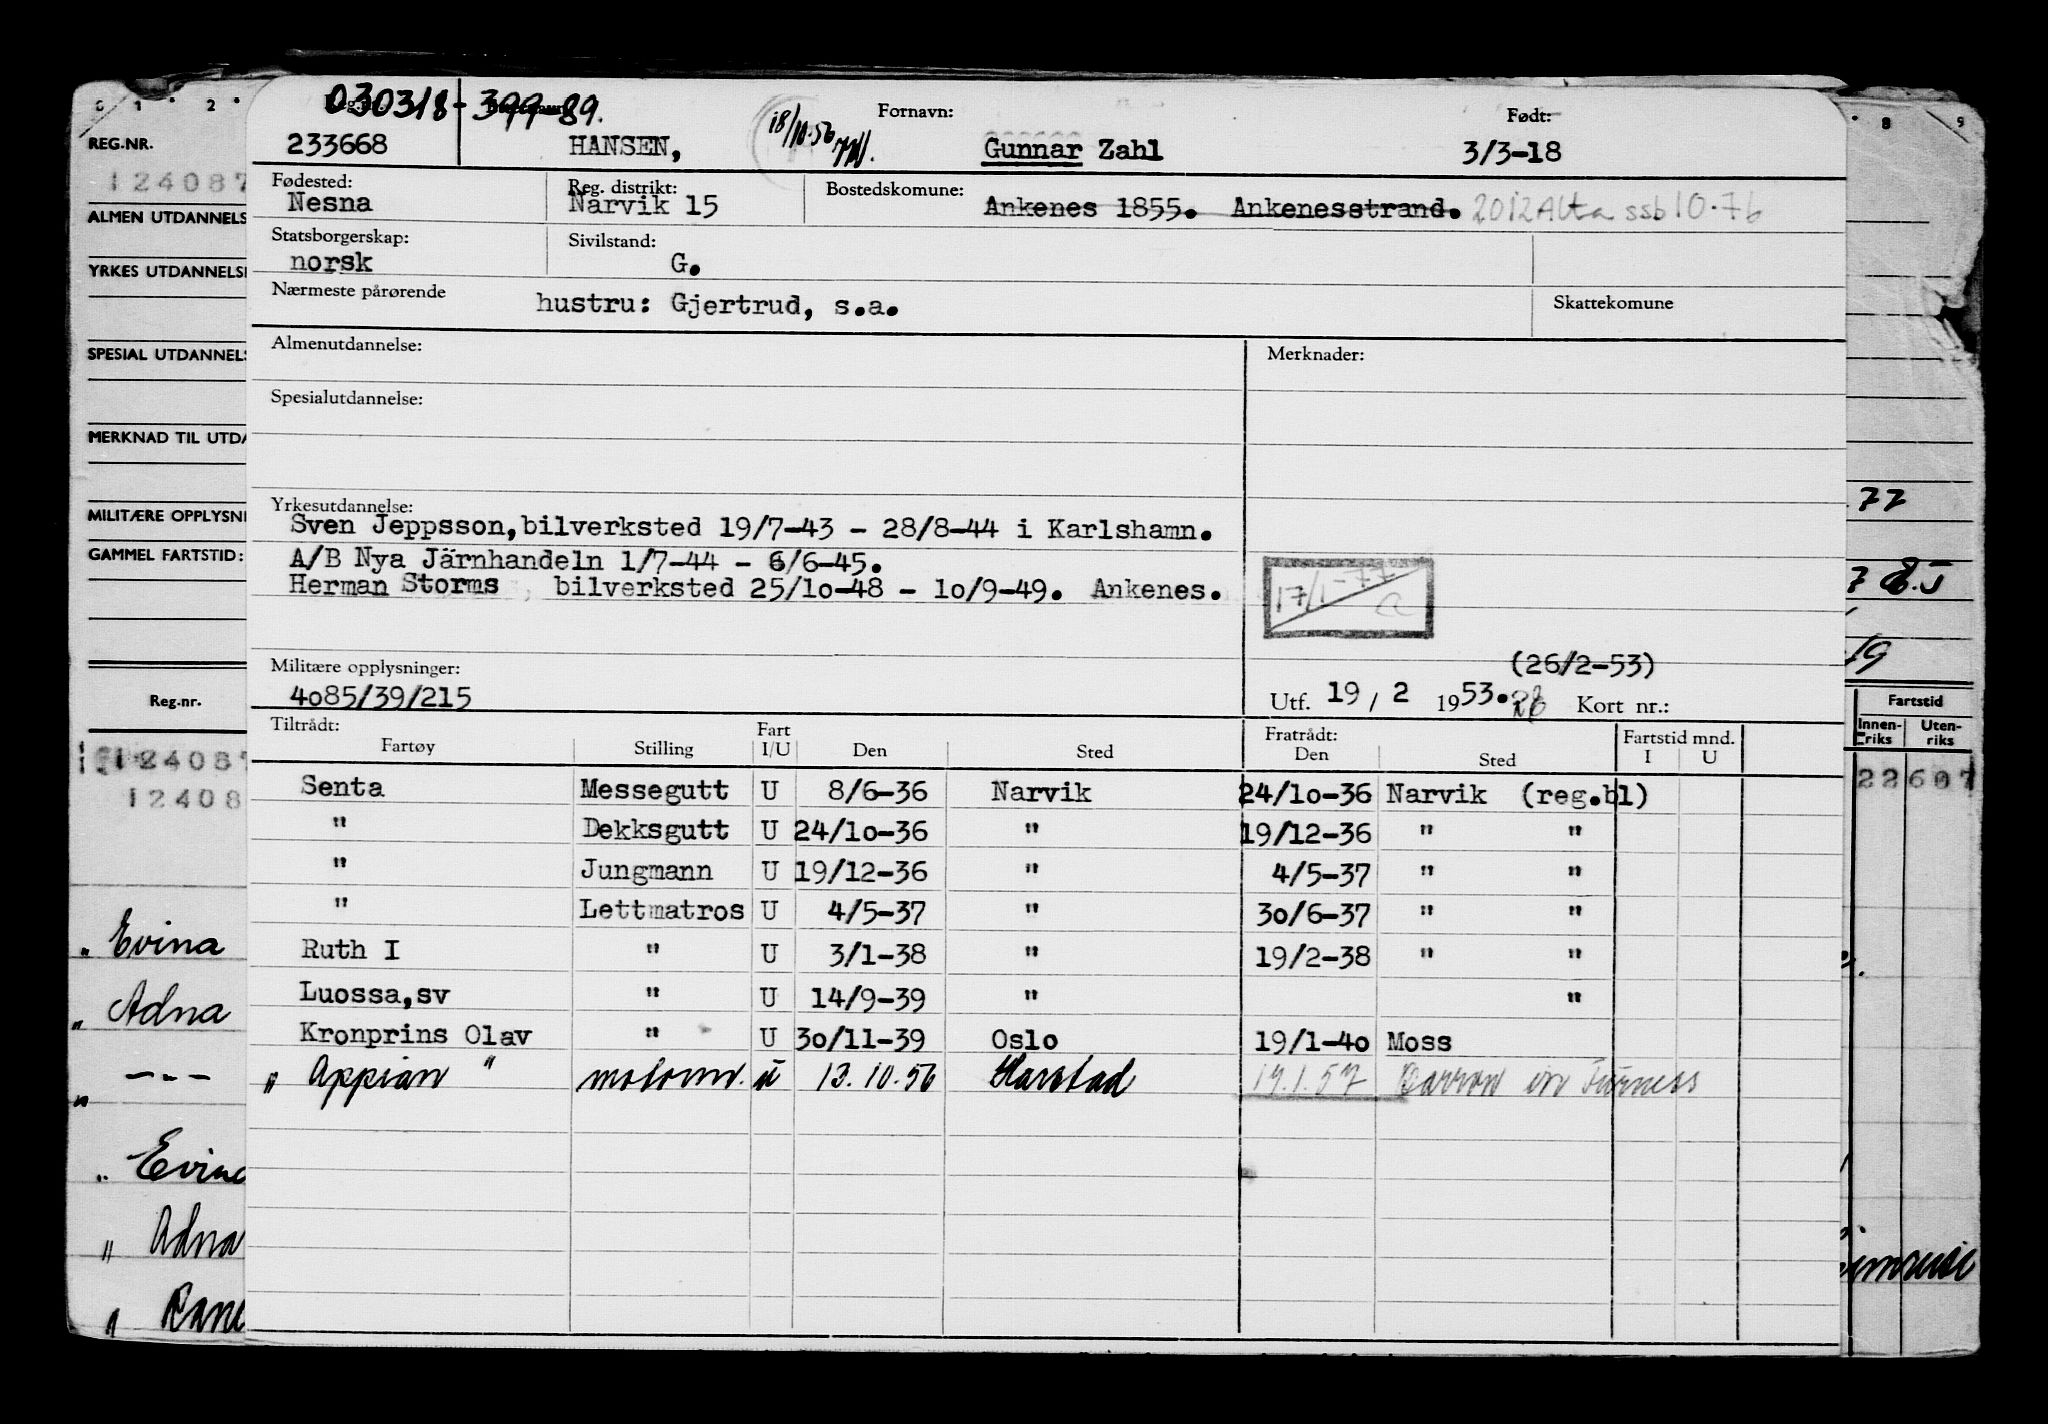 030318-39989.
Reg.nr. Fornavn: Født:
233668 HANSEN, 18/10.56 Gunnar Zahl 3/3-18
Fødested: Reg. distrikt: Bostedskomune:
Nesna Narvik 15 Ankenes 1855. Ankenesstrand. 2012 Alta ssb 10.76
Statsborgerskap: Sivilstand:
norsk G.
Nærmeste pårørende hustru: Gjertrud, s.a. Skattekomune
Almenutdannelse: Merknader:
Spesialutdannelse:
Yrkesutdannelse:
Sven Jeppsson, bilverksted 19/7-43 - 28/8-44 i Karlshamn.
A/B Nya Järnhandeln 1/7-44 - 6/6-45.
Herman Storms, bilverksted 25/10-48 - 10/9-49. Ankenes.
17/1-77
Militære opplysninger: (26/2-53)
4085/39/215 Utf. 19 / 2 1953. Kort nr.:
Tiltrådt: Fart Fratrådt: Fartstid mnd.
Fartøy Stilling I/U Den Sted Den Sted I U
Senta Messegutt U 8/6-36 Narvik 24/10-36 Narvik (reg.bl)
" Dekksgutt U 24/10-36 " 19/12-36 " "
" Jungmann U 19/12-36 " 4/5-37 " "
" Lettmatros U 4/5-37 " 30/6-37 " "
Ruth I " U 3/1-38 " 19/2-38 " "
Luossa,sv " U 14/9-39 " "
Kronprins Olav " U 30/11-39 Oslo 19/1-40 Moss
" Appian " motorm. u 13.10.56 Harstad 19.1.57 Barrow in Furness
0 1 2
REG.NR.
124087
ALMEN UTDANNELS
YRKES UTDANNELSE
SPESIAL UTDANNELS
MERKNAD TIL UTDA
MILITÆRE OPPLYSNI
GAMMEL FARTSTID:
Reg.nr.
124087
12408
" Evina
" Adna
" -"-
" Evina
" Adna
" Rane
8 9
77
19
Fartstid
Innen-
riks
Uten-
riks
22607